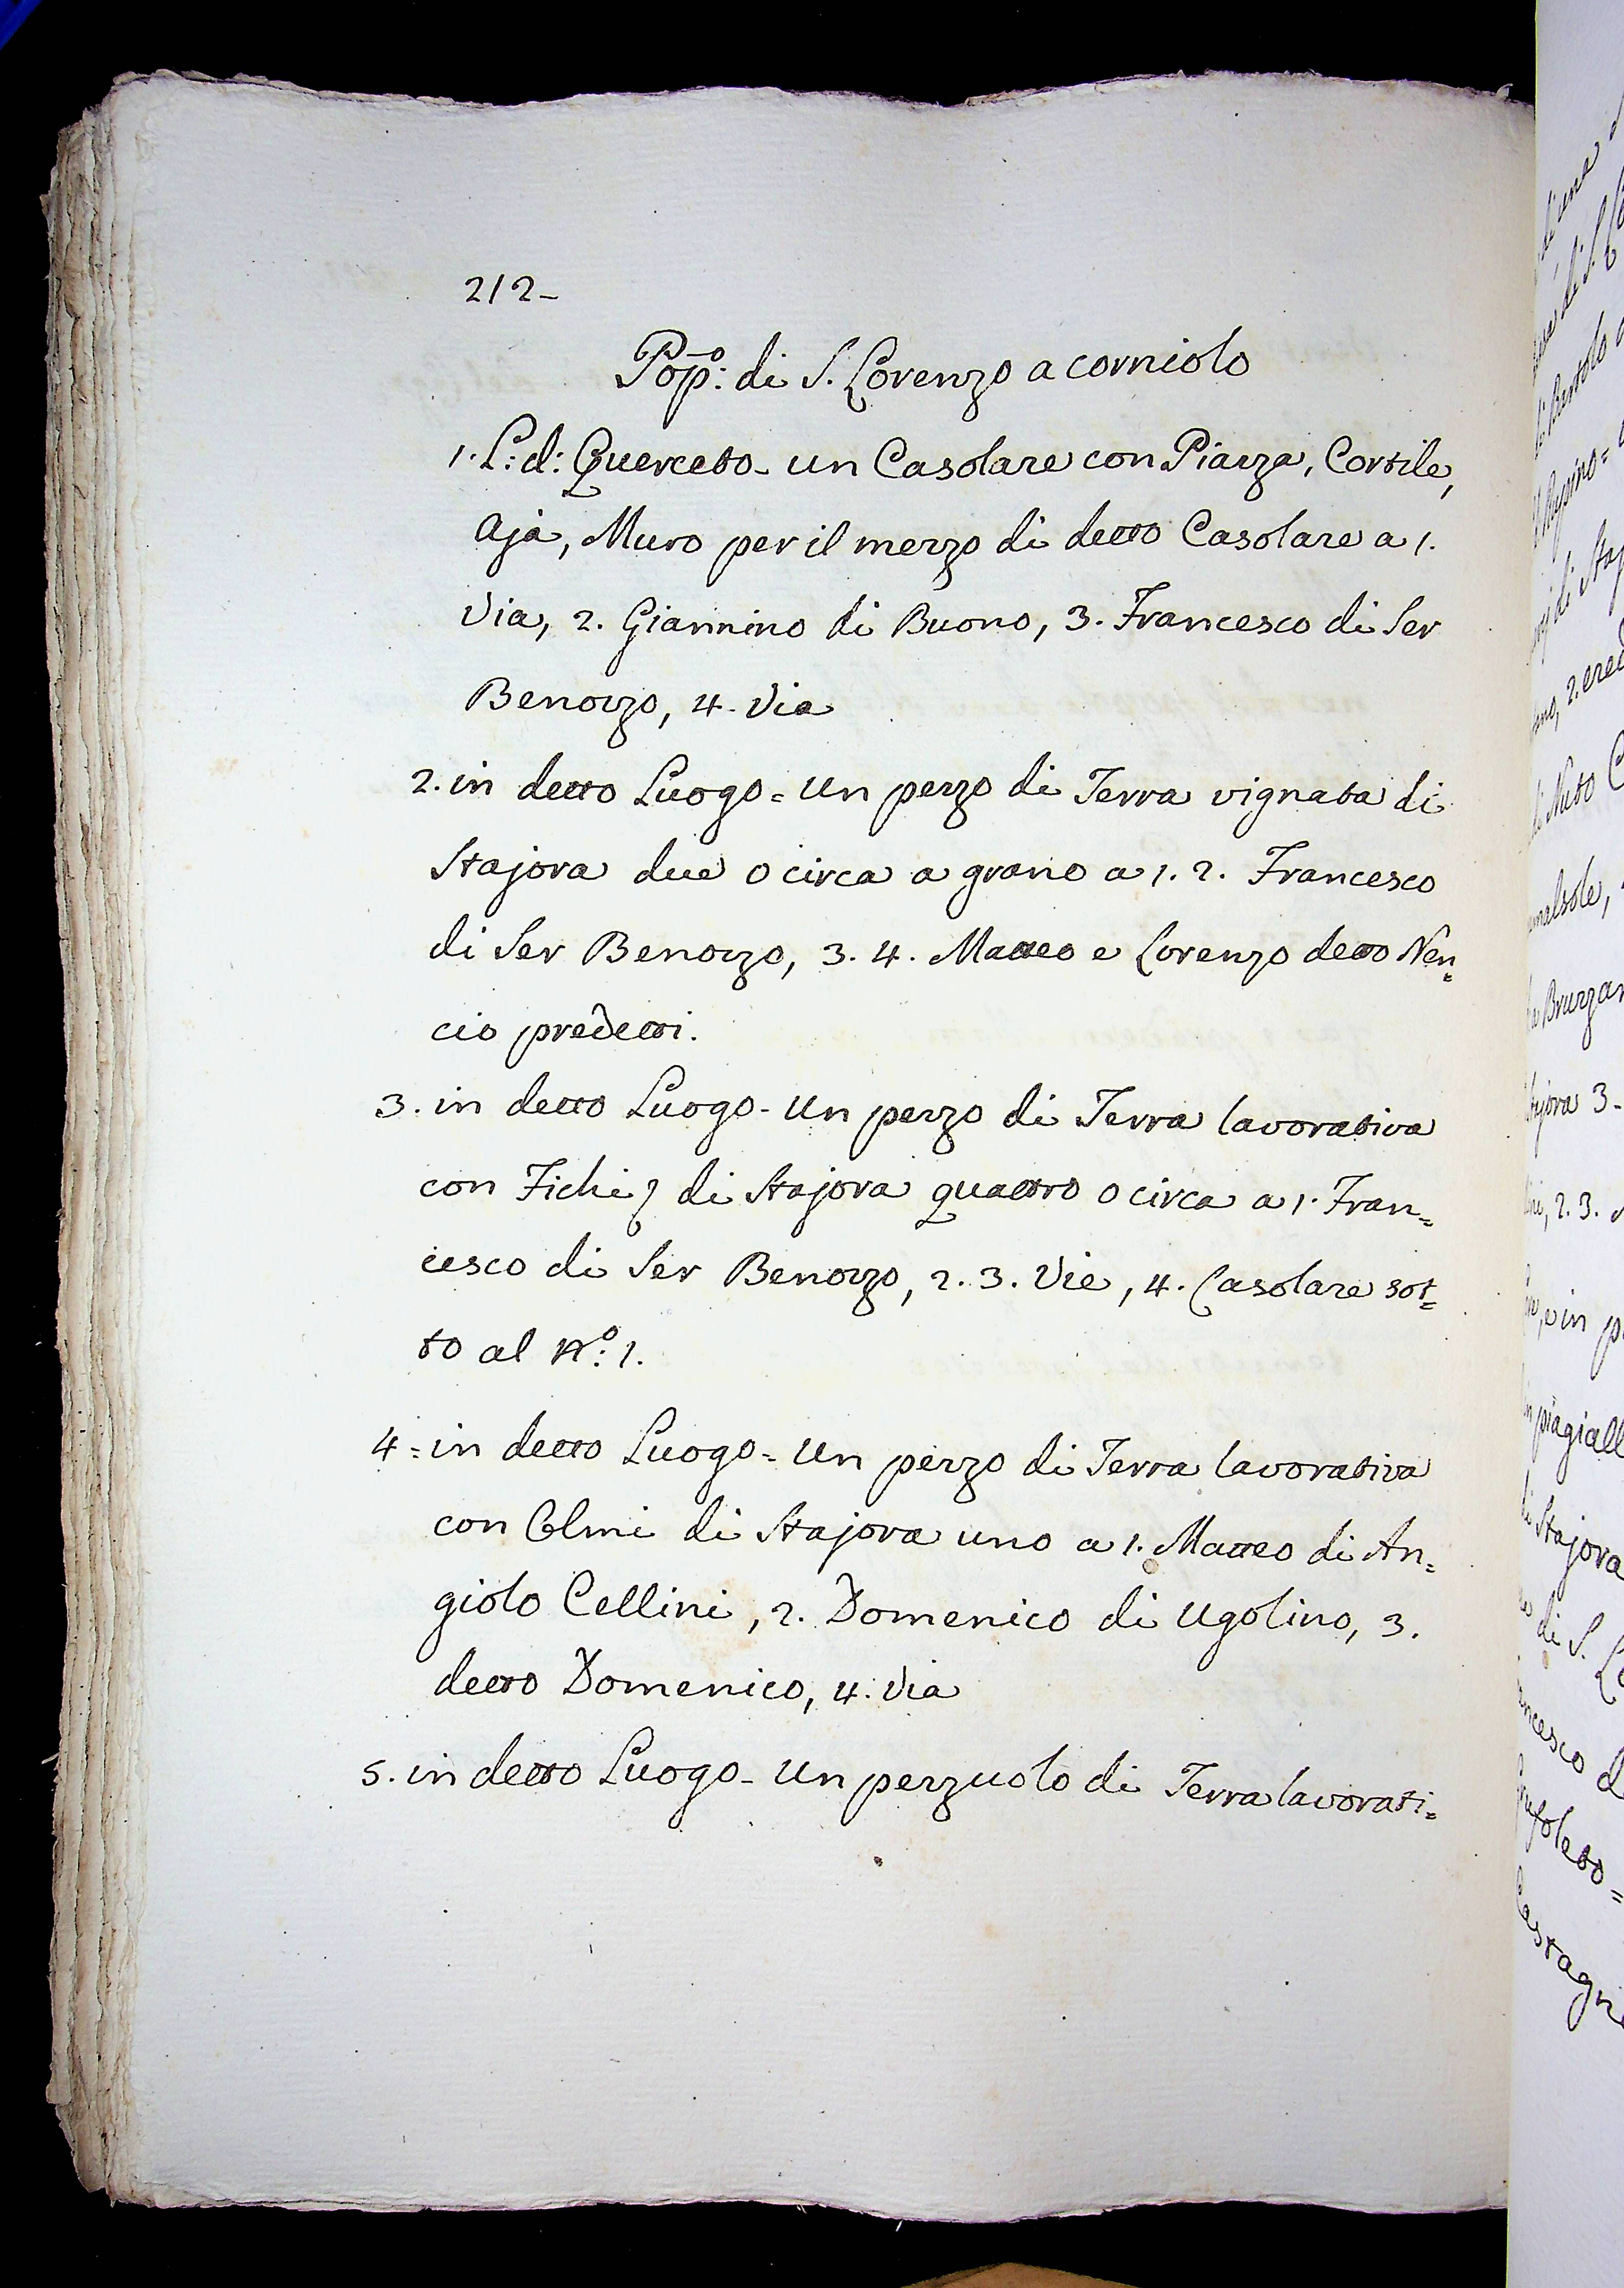 212-
Pop.o: di S. Lorenzo a corniolo
1. L: d: Querceto- un Casolare con Piazza, Cortile,
Aja, Muro per il mezzo di detto Casolare a 1.
Via, 2. Giannino di Buono, 3. Francesco di Ser
Benozzo, 4. Via
2. in detto Luogo = Un pezzo di Terra vignata di
Stajora due o circa a grano a 1. 2. Francesco
di Ser Benozzo, 3. 4. Matteo e Lorenzo detto Nen=
cio predetti.
3. in detto Luogo - Un pezzo di Terra lavorativa
con Fichi di Stajora quattro o circa a 1. Fran=
cesco di Ser Benozzo, 2. 3. Vie, 4. Casolare sot=
to al No: 1.
4 = in detto Luogo = Un pezzo di Terra lavorativa
con Olmi di Stajora uno a 1. Matteo di An=
giolo Cellini, 2. Domenico di Ugolino, 3.
detto Domenico, 4. Via
5. in detto Luogo - Un pezzuolo di Terra lavorati=